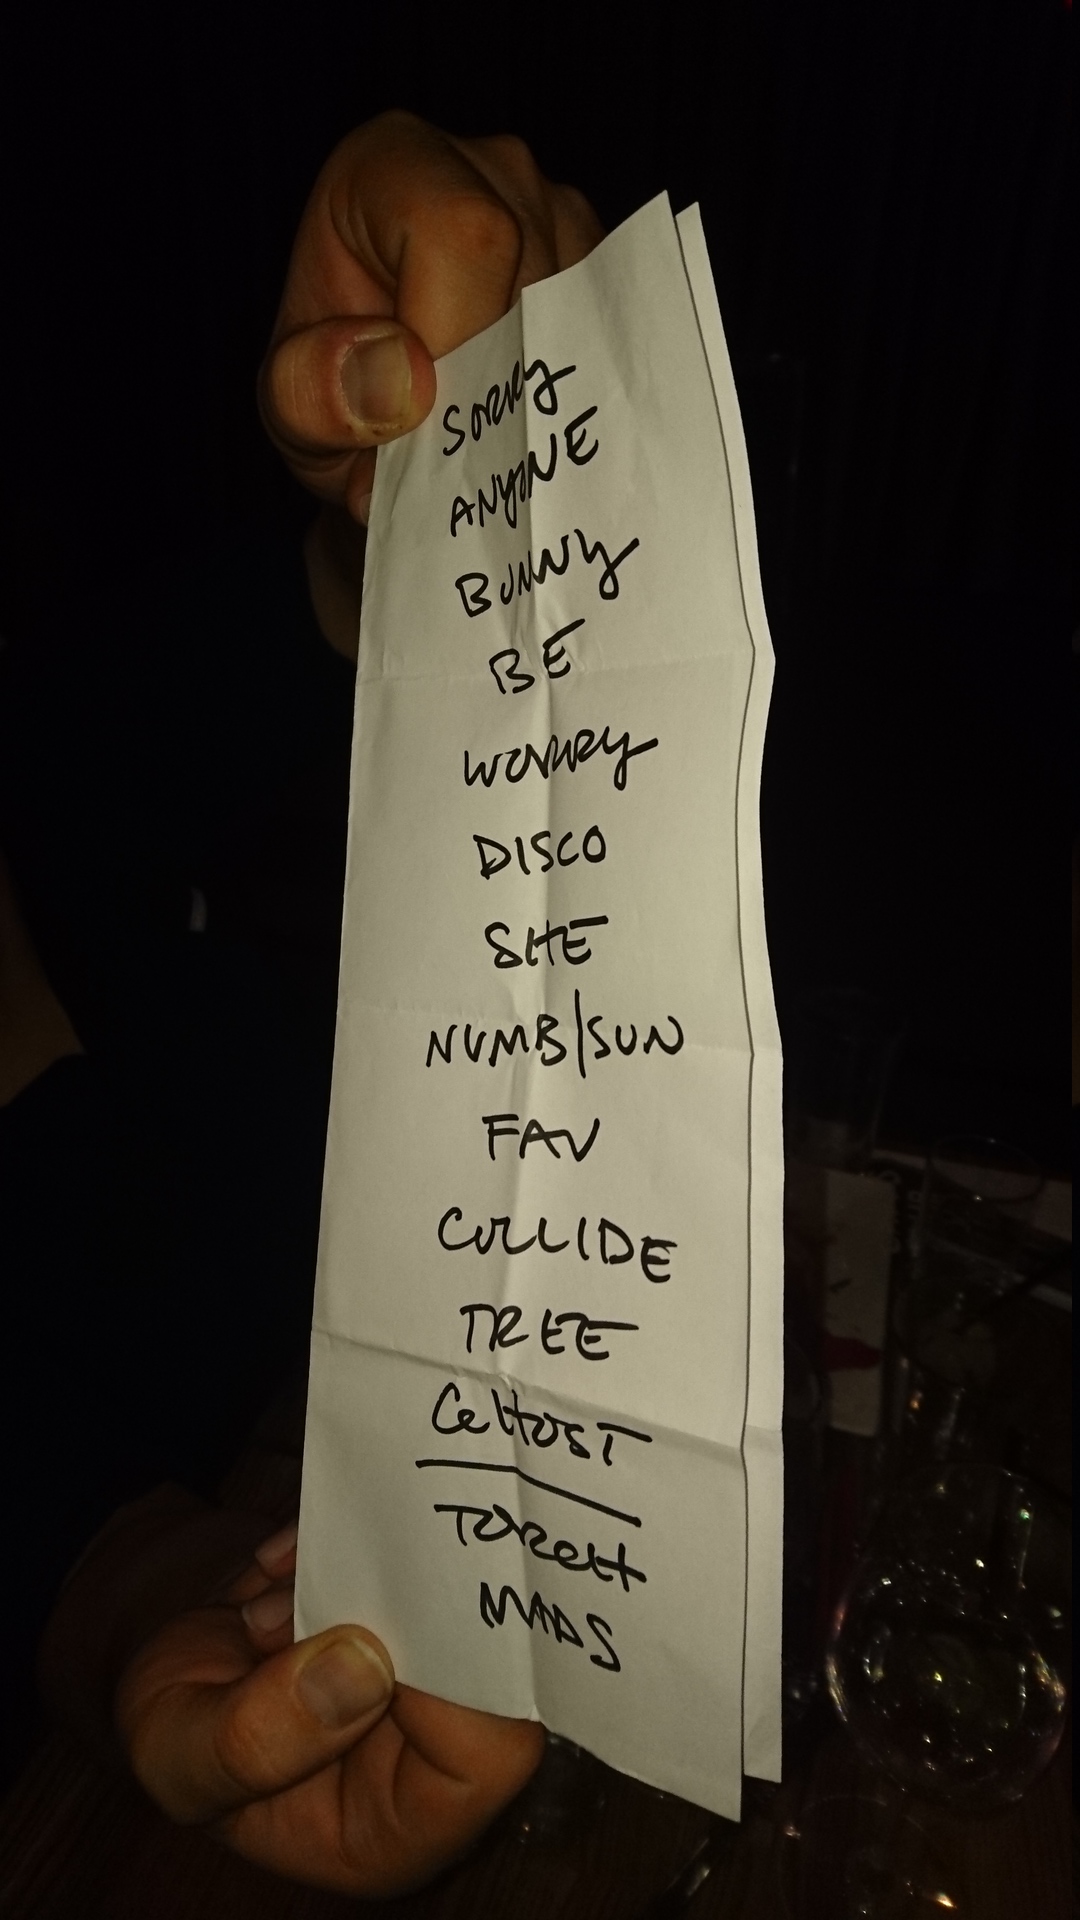 SORRY
ANYONE
BUNNY
BE
WORRY
DISCO
SHE
NUMB/SUN
FAV
COLLIDE
TREE
GHOST
TORCH
MAPS